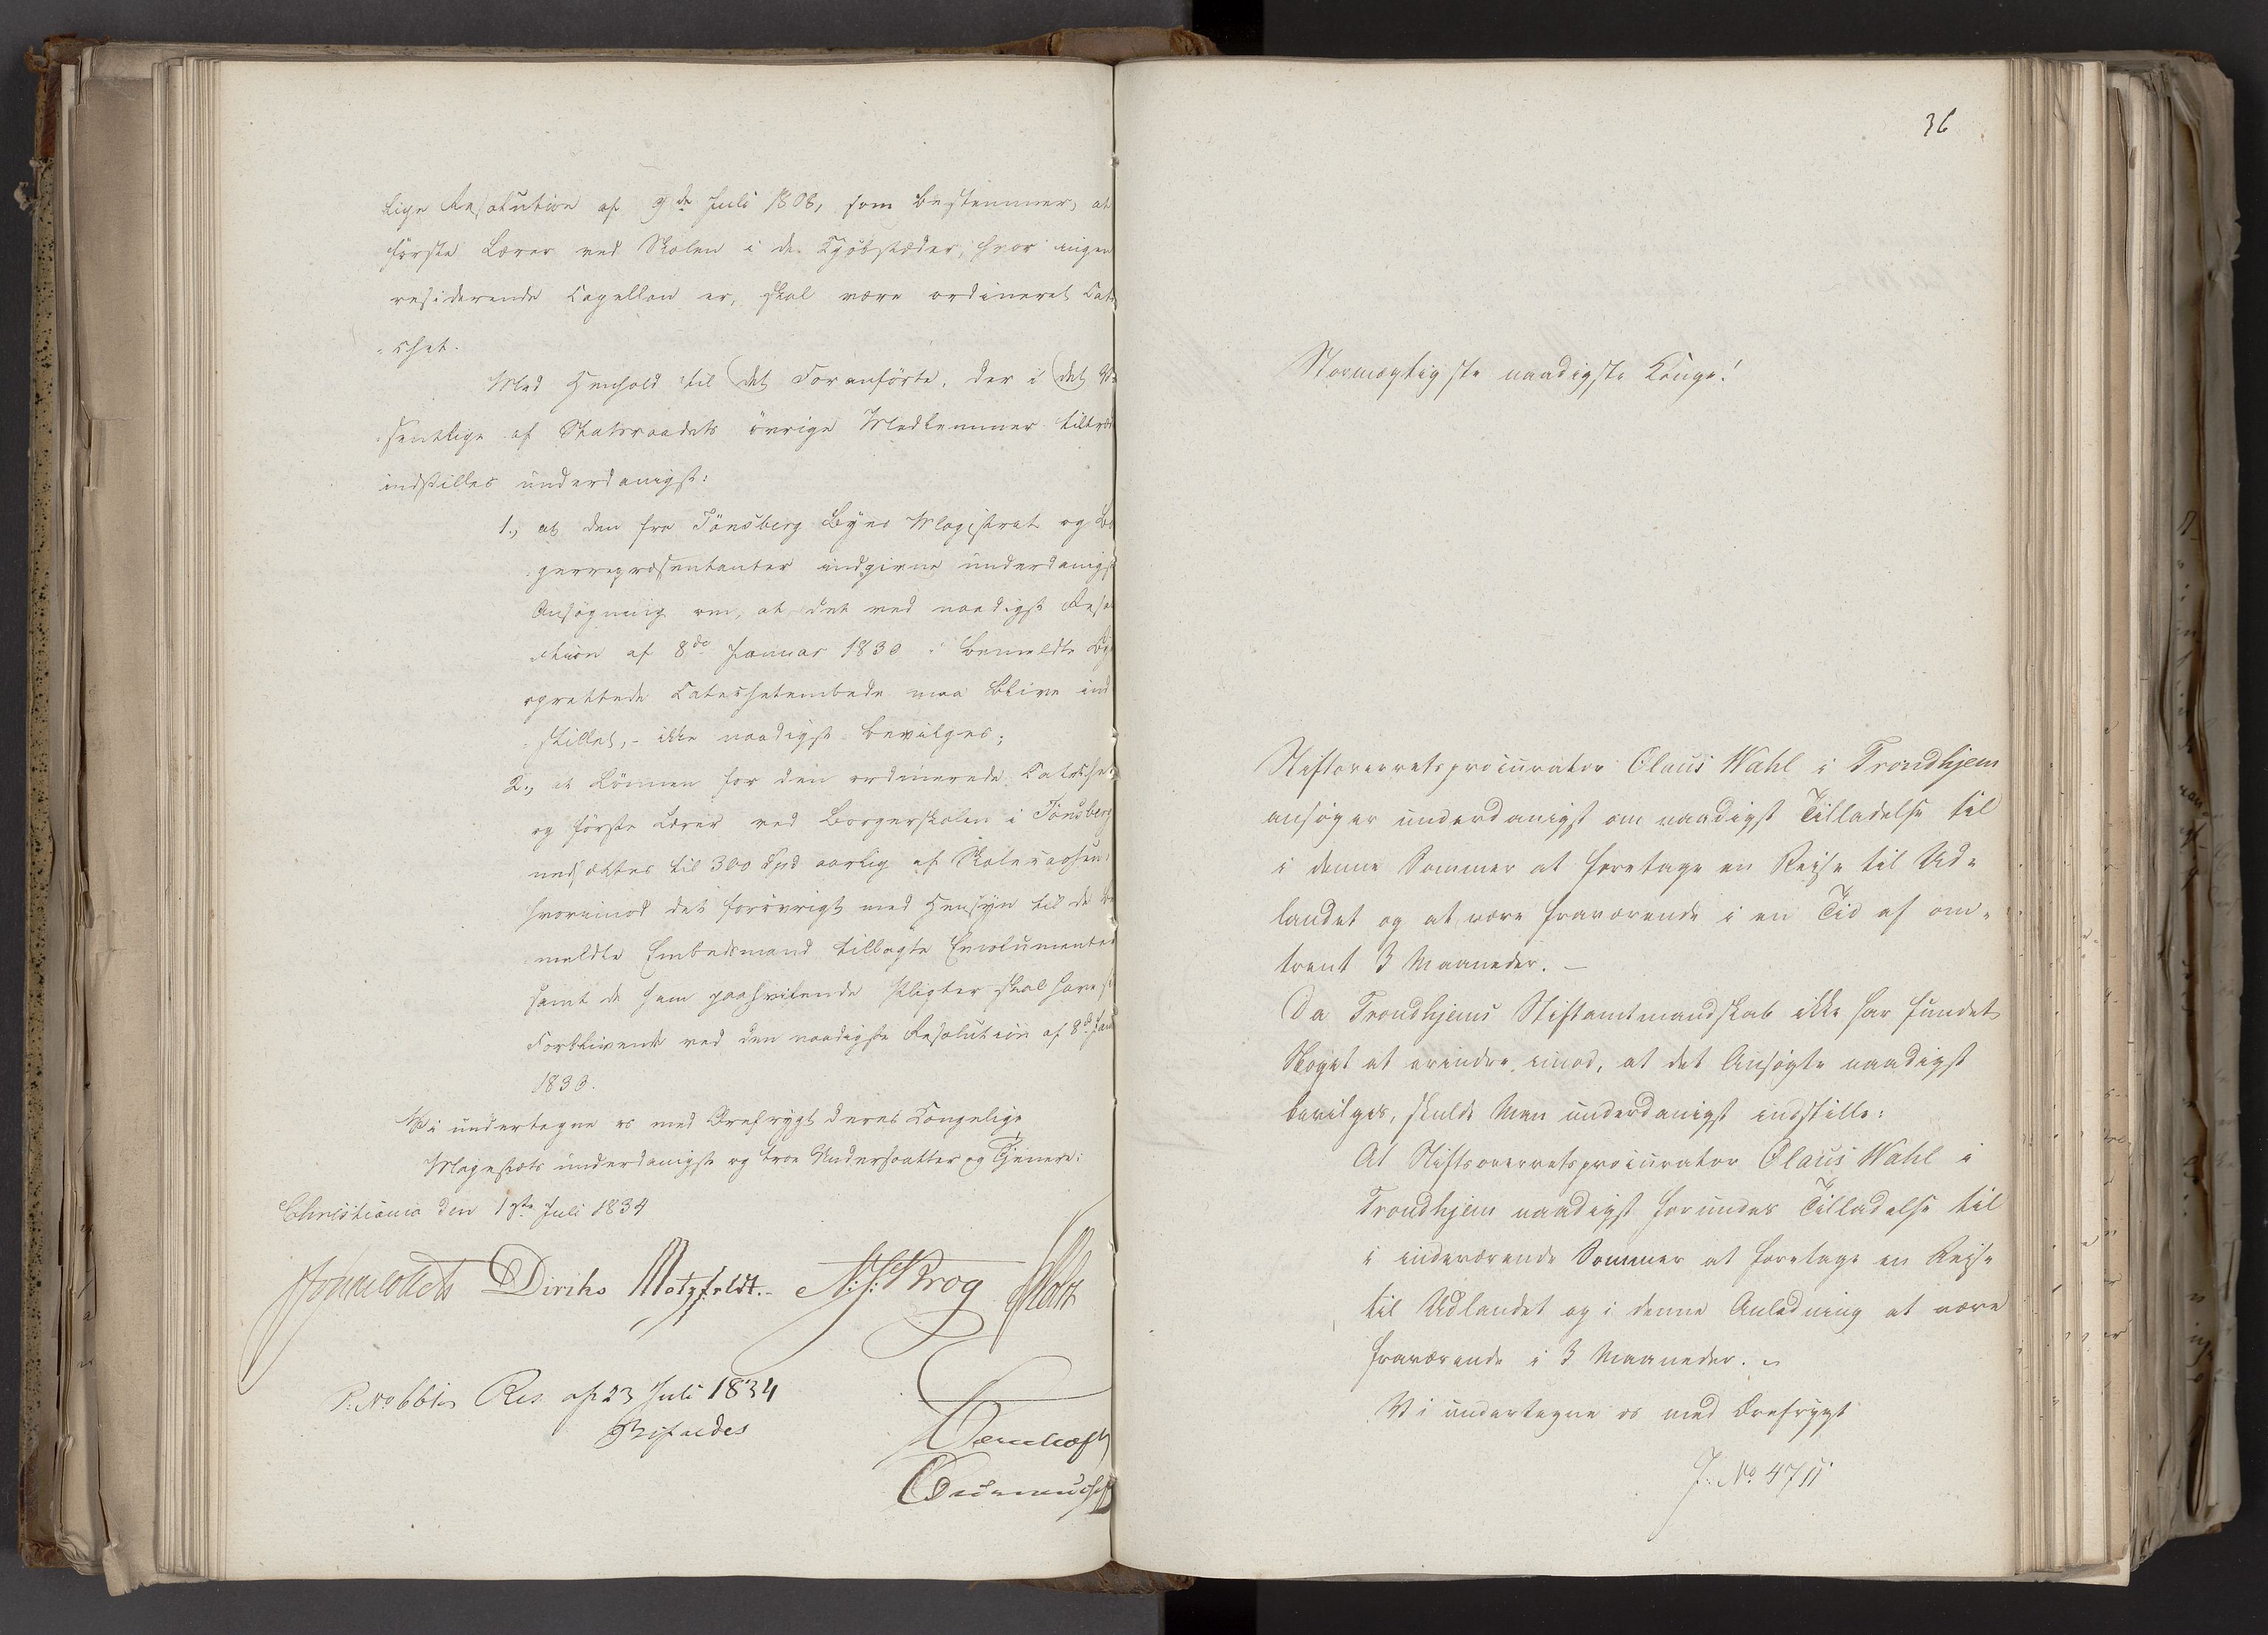 lige Resolution af 9de Juli 1808, som bestemmer, at
första Lærer ved Skolen i de Kjöbstæder, hvor ingen
residerende Capellan er, skal være ordineret Cate
-chet.
Med Henhold til det Foranförte, der i det Væ
sentlige af Statsraadets övrige Medlemmer tiltræd
indstilles underdanigst:
1., at den fra Tönsberg Byes Magistrat og Bo
gerrepræsentanter indgivne underdanigst
Ansögning om, at det ved naadigst Reso
-lution af 8de Januar 1830 i bemeldte By
oprettede Catechetembede maa blive ind
-stillet, - ikke naadigst bevilges;
2., at Lönnen for den ordinerede Catechet
og förste Lærer ved Borgerskolen i Tönsberg
nedsættes til 300 Spd aarlig af Skolecassen,
hvorimod det forövrigt med Hensyn til de be
meldte Embedsmand tillagte Emolumenter
samt de ham paahvilende Pligter skal have sit
Forblivende ved den naadigste Resolution af 8de Janu
1830.
Vi undertegne os med Ærefrygt Deres Kongelige
Majestæts underdanigste og troe Undersaatter og Tjenere:
Christiania den 1ste Juli 1834
Diriks Motzfeldt. N: J: Krog Holst
P: No 661. Res. af 23 Juli 1834
Bifaldes
36
Stormægtigste naadigste Konge!
Stiftsoverretsprocurator Claus Wahl i Trondhjem
ansøger underdanigst om naadigst Tilladelse til
i denne Sommer at foretage en Reise til Ud-
landet og at være fraværende i en Tid af om-
trent 3 Maaneder. -
Da Trondhjems Stiftamtmandskab ikke har fundet
Noget at erindre imod, at det Ansøgte naadigst
bevilges, skulde Man underdanigst indstille:
At Stiftsoverretsprocurator Claus Wahl i
Trondhjem naadigst forundes Tilladelse til
i indeværende Sommer at foretage en Reise
til Udlandet og i denne Anledning at være
fraværende i 3 Maaneder. -
Vi undertegne os med Ærefrygt
J: No 47